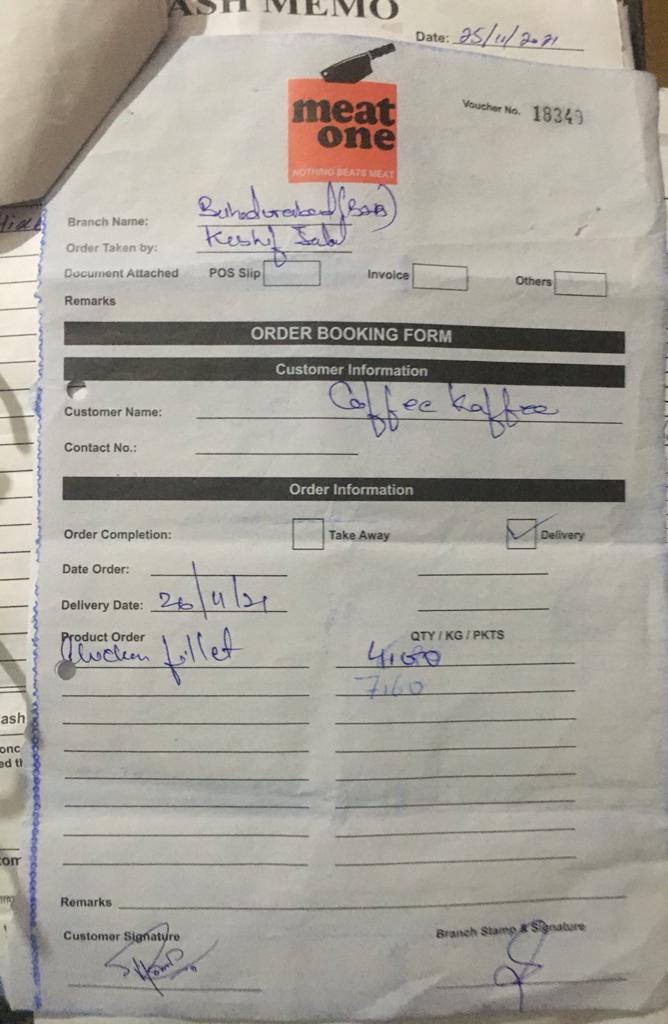 ASH MEMO
Date: 25/11/2021
meat
one
NOTHING BEATS MEAT
Voucher No. 18349
Branch Name: Bahadurabad (BAB)
Order Taken by: Kashif
Document Attached POS Slip Invoice Others
Remarks
ORDER BOOKING FORM
Customer Information
Customer Name: Coffee Kaffee
Contact No.:
Order Information
Order Completion: Take Away Delivery
Date Order:
Delivery Date: 26/11/21
Product Order QTY / KG / PKTS
Chicken fillet
7,160
ash
onc
ed th
Remarks
Customer Signature Branch Stamp & Signature